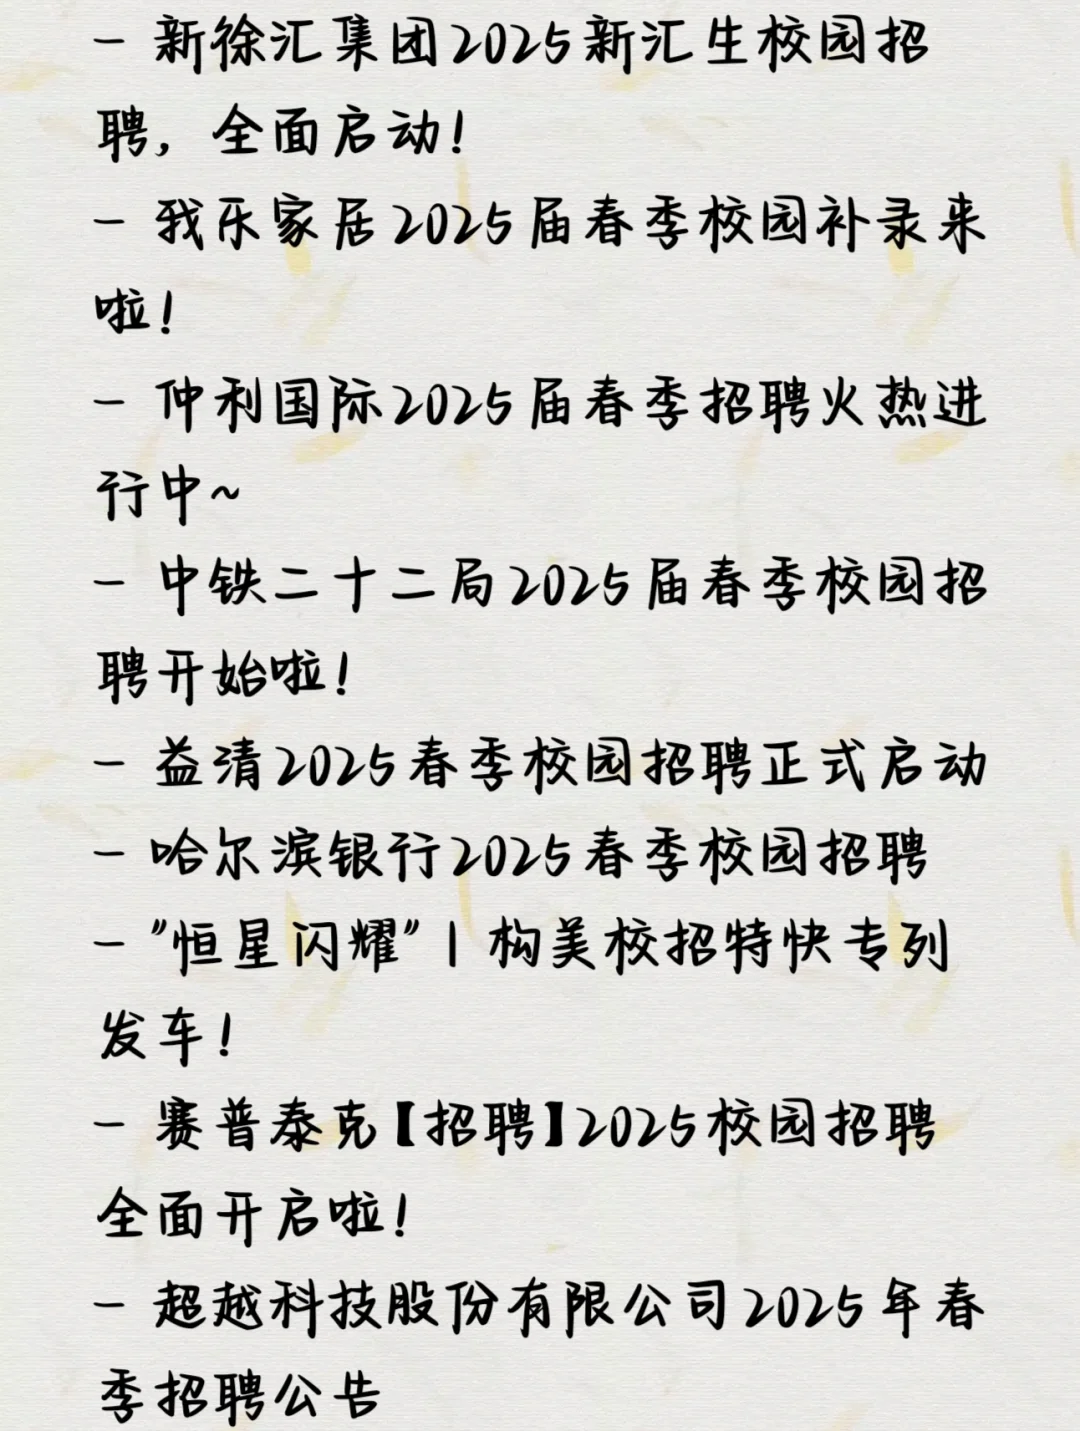 - 新徐汇集团2025新汇生校园招
聘，全面启动！
- 我乐家居2025届春季校园补录来
啦！
- 仲利国际2025届春季招聘火热进
行中~
- 中铁二十二局2025届春季校园招
聘开始啦！
- 益清2025春季校园招聘正式启动
- 哈尔滨银行2025春季校园招聘
- "恒星闪耀"丨构美校招特快专列
发车！
- 赛普泰克【招聘】2025校园招聘
全面开启啦！
- 超越科技股份有限公司2025年春
季招聘公告